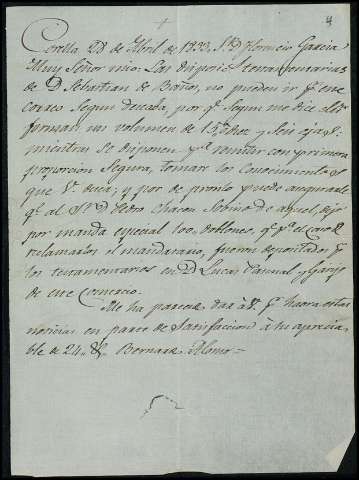 4
Corella 28 de Abril de 1833. Sr. D. Florencio Garcia
Muy Señor mio: Las disposicis. testamentarias
de D. Sebastian de Baños, no pueden ir pr. este
correo segun deseaba, por qe. segun me dice
forman un volumen de y seis ojas:
mientras se disponen pa. remitir con primera
proporcion segura, tomare los conocimientos
que Vd. dice; y por de pronto puede asegurarle
qe. al Sr. D. Pedro Chacon Sobino de aquel, dejo
por manda especial 100. doblones, qe. pr. el caso de
reclamarlos el mandatario, fueron depositados pr.
los testamentarios en D. Lucas y Garcia
de ese Comercio.
Me ha parecido dar á V. pr. haora estas
noticias en parte de satisfaccion á su aprecia
ble de 24. Bernardo Alonso =